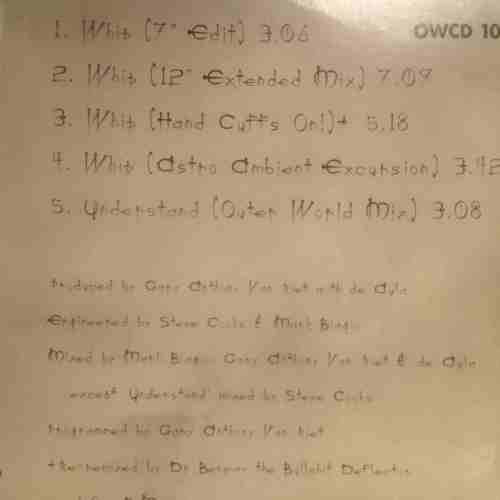 1. Whip (7" Edit) 3.06
OWCD 10
2. Whip (12" Extended Mix) 7.09
3. Whip (Hand Cuffs On!)+ 5.18
4. Whip (Astro Ambient Excursion) 3.42
5. Understand (Outer World Mix) 3.08
Produced by Gary Anthony Van Riet with de Ayla
Engineered by Steve & Mark
Mixed by Mark Gary Anthony Van Riet & de Ayla
except 'Understand' mixed by Steve
Programmed by Gary Anthony Van Riet
+ Re-remixed by Dr the Bullshit Deflector